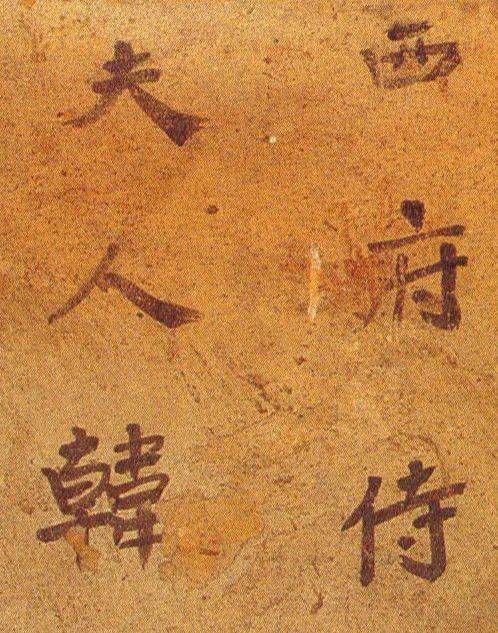 西府侍
夫人韓